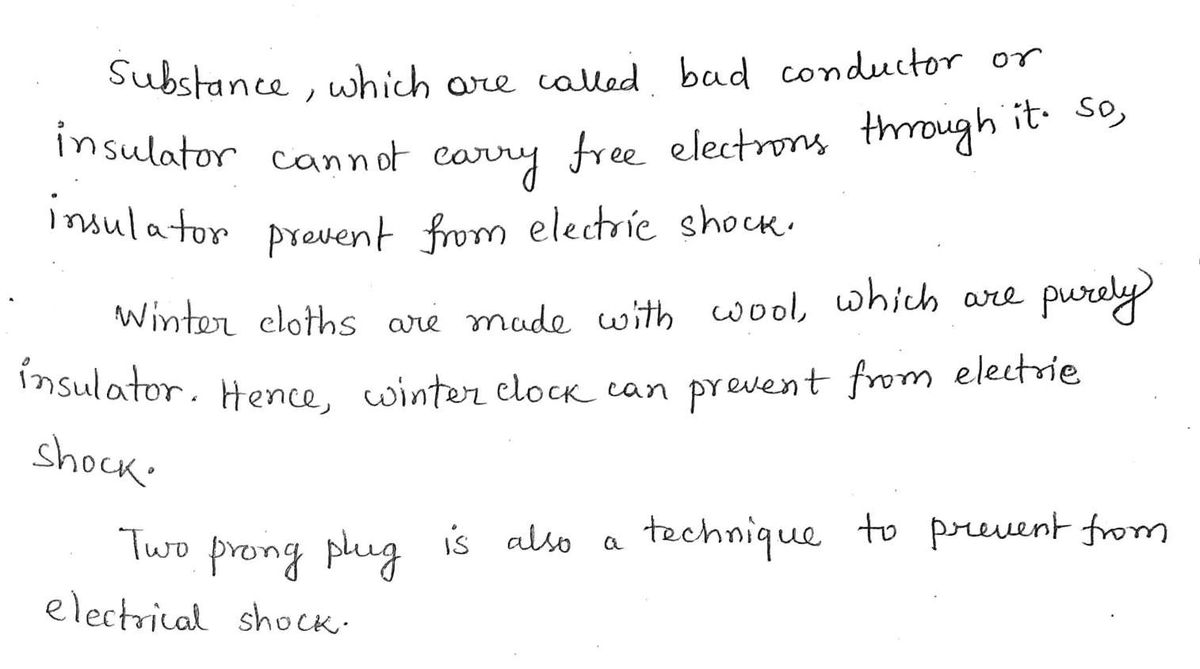 Substance, which are called bad conductor or
insulator cannot carry free electrons through it. So,
insulator prevent from electric shock.
Winter cloths are made with wool, which are purely
insulator. Hence, winter clock can prevent from electric
shock.
Two prong plug is also a technique to prevent from
electrical shock.